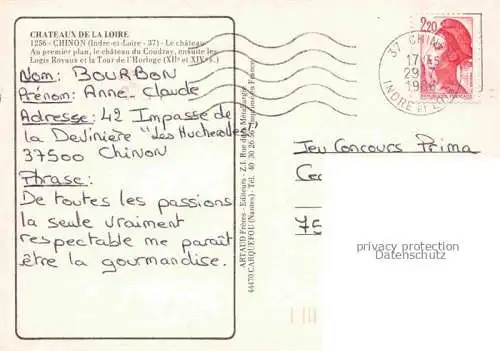 CHATEAUX DE LA LOIRE
1256 - CHINON (Indre-et-Loire - 37) - Le château
Au premier plan, le château du Coudray, ensuite les
Logis Royaux et la Tour de l'Horloge (XIIe et XIVe s.)
Nom: BOURBON
Prénom: Anne-Claude
Adresse: 42 Impasse de
la Devinière "Les Hucherolles"
37500 CHINON
Phrase:
De toutes les passions
la seule vraiment
respectable me paraît
être la gourmandise.
ARTAUD Frères - Editeurs - Z.I. Rue de la
44470 CARQUEFOU (Nantes) - Tél. 40 30
2,20
37 CHINON
17 H
29
19
INDRE et LOIRE
Jeu Concours Prima
75
privacy protection
Datenschutz